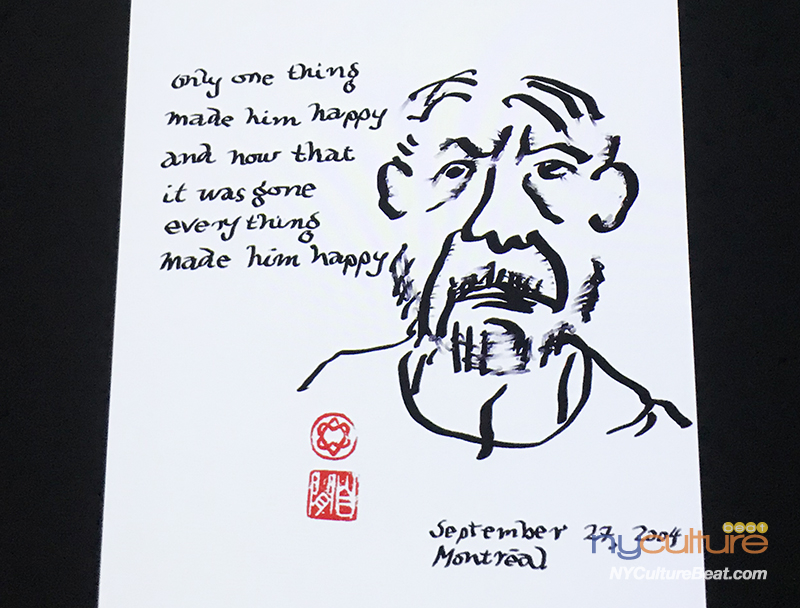 only one thing
made him happy
and now that
it was gone
everything
made him happy
September 27, 2004
Montréal
beat
nyculture
NYCultureBeat.com